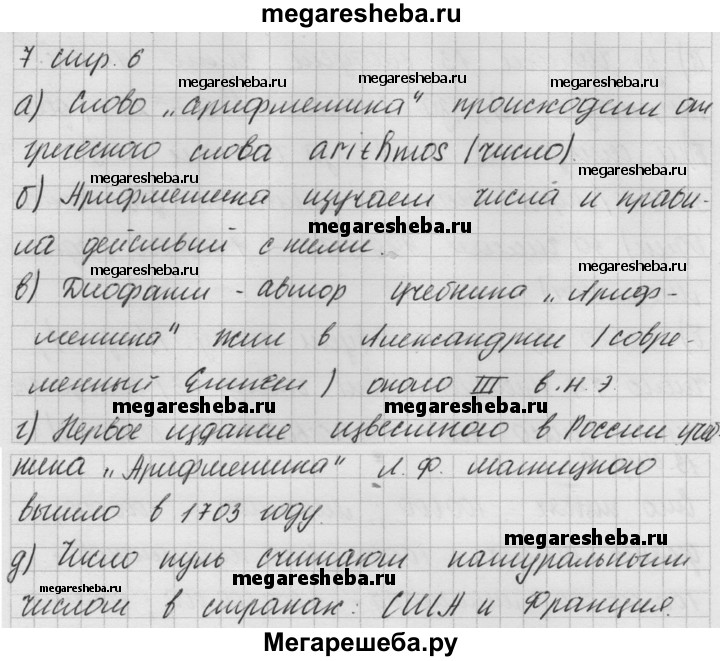 megaresheba.ru
7 стр. 6
megaresheba.ru megaresheba.ru
а) Слово „арифметика“ происходит от
греческого слова arithmos (число).
megaresheba.ru megaresheba.ru
б) Арифметика изучает числа и прави-
megaresheba.ru
ла действий с ними.
megaresheba.ru megaresheba.ru
в) Диофант - автор учебника „Ариф-
метика“ жил в Александрии (совре-
менный Египет) около III в.н.э.
megaresheba.ru megaresheba.ru
г) Первое издание известного в России учеб-
ника „Арифметика“ Л.Ф. Магницкого
вышло в 1703 году.
megaresheba.ru
д) Число нуль считают натуральным
megaresheba.ru megaresheba.ru megaresheba.ru
числом в странах: США и Франция.
Мегарешеба.ру